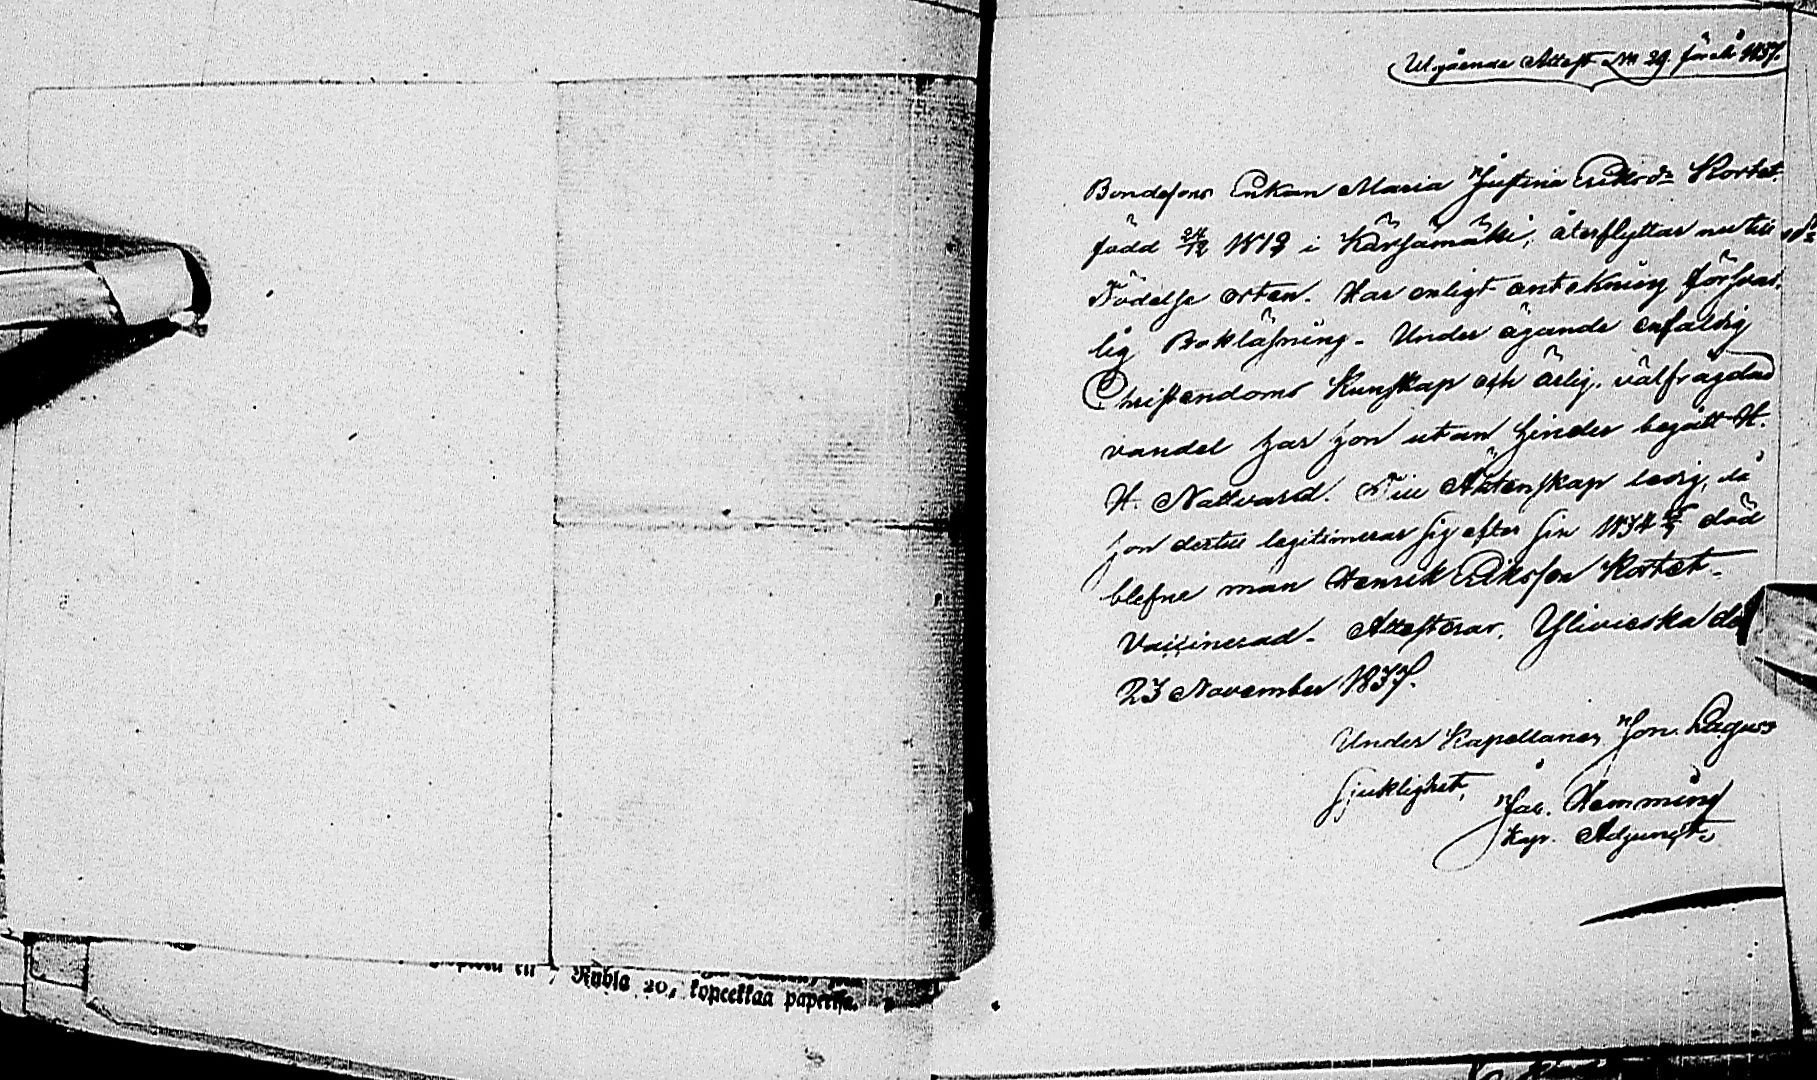 Rubla 20, kopeekkaa paperisa.
Utgående Attest No 29 för år 1837.
Bondesons Enkan Maria Justina Eriksdr Kortet
född 24/12 181 i Kärsämäki, återflyttar nu till
Födelse orten. Har enligt antekning försvar,
lig Bokläsning. Under ägande enfaldig
Christendoms Kunskap och ärlig, välfrägdad
vandel har hon utan hinder begått H.
H. Nattvard. Till Äktenskap ledig, då
hon dertill legitimerar sig efter sin 1834 död
blefne man Henrik Eriksson Kortet.
Vaccinerad. Attesterar. Ylivieska
23 November 1837.
Under Kapellanen Jon. Lagus
sjuklighet,
Jac. Hemming
Kap. Adjunct.